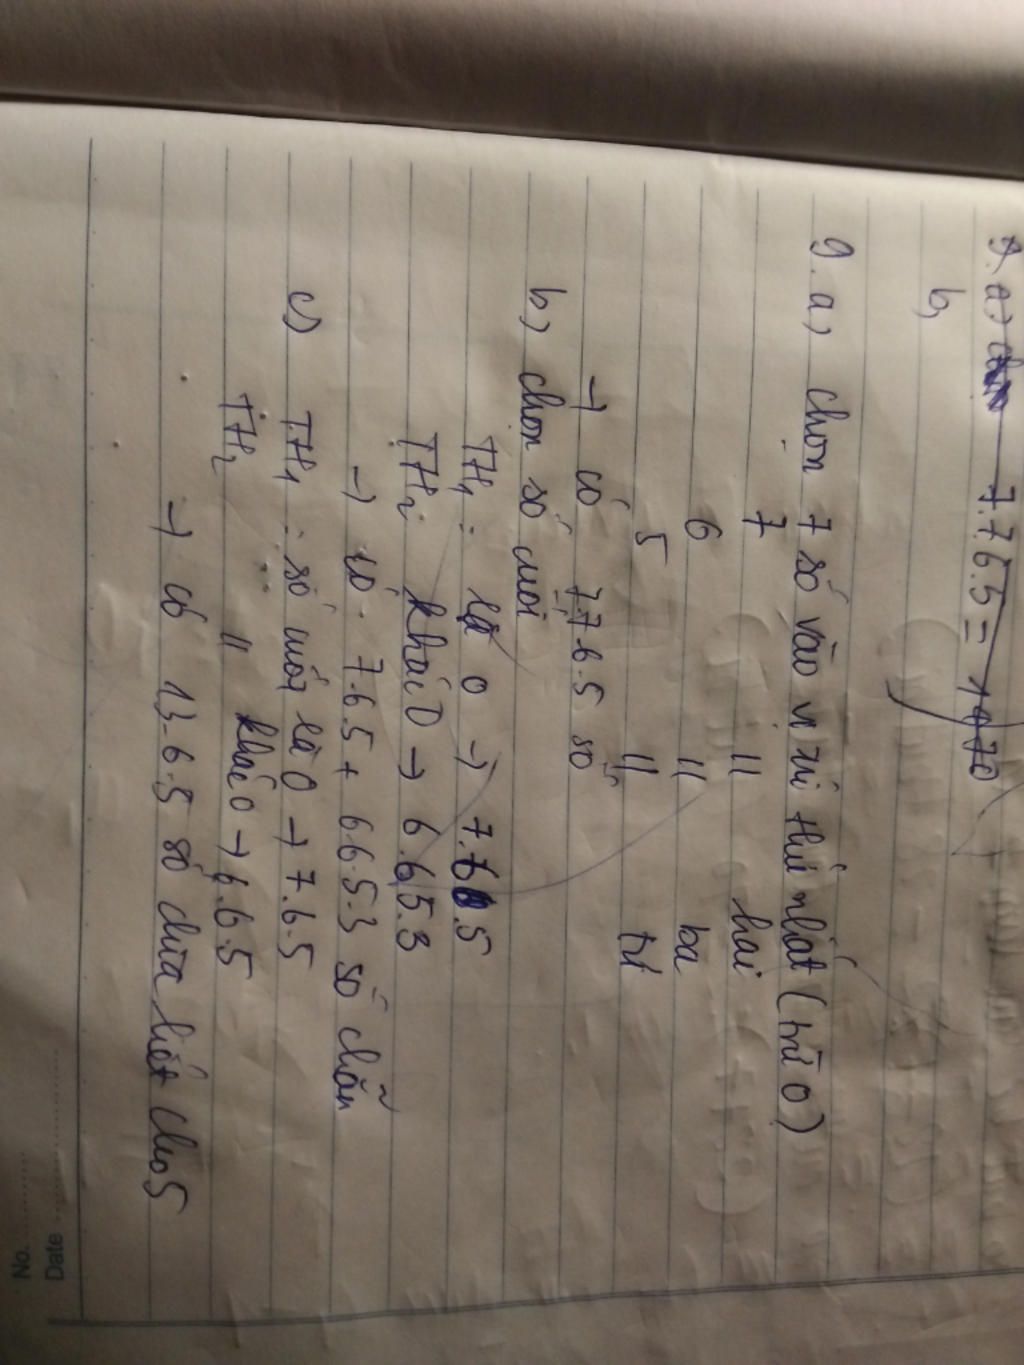 9. a, 7.7.6.5 = 1470
b,
9. a, chọn 7 số vào vị trí thứ nhất (trừ 0)
7 // hai
6 // ba
5 // tư
→ có 7.7.6.5 số
b, chọn số cuối
TH1: là 0 → 7.6.5
TH2: khác 0 → 6.6.5.3
→ có 7.6.5 + 6.6.5.3 số chẵn
c, TH1: số cuối là 0 → 7.6.5
TH2 // khác 0 → 6.6.5
→ có 13.6.5 số chia hết cho 5
No.
Date